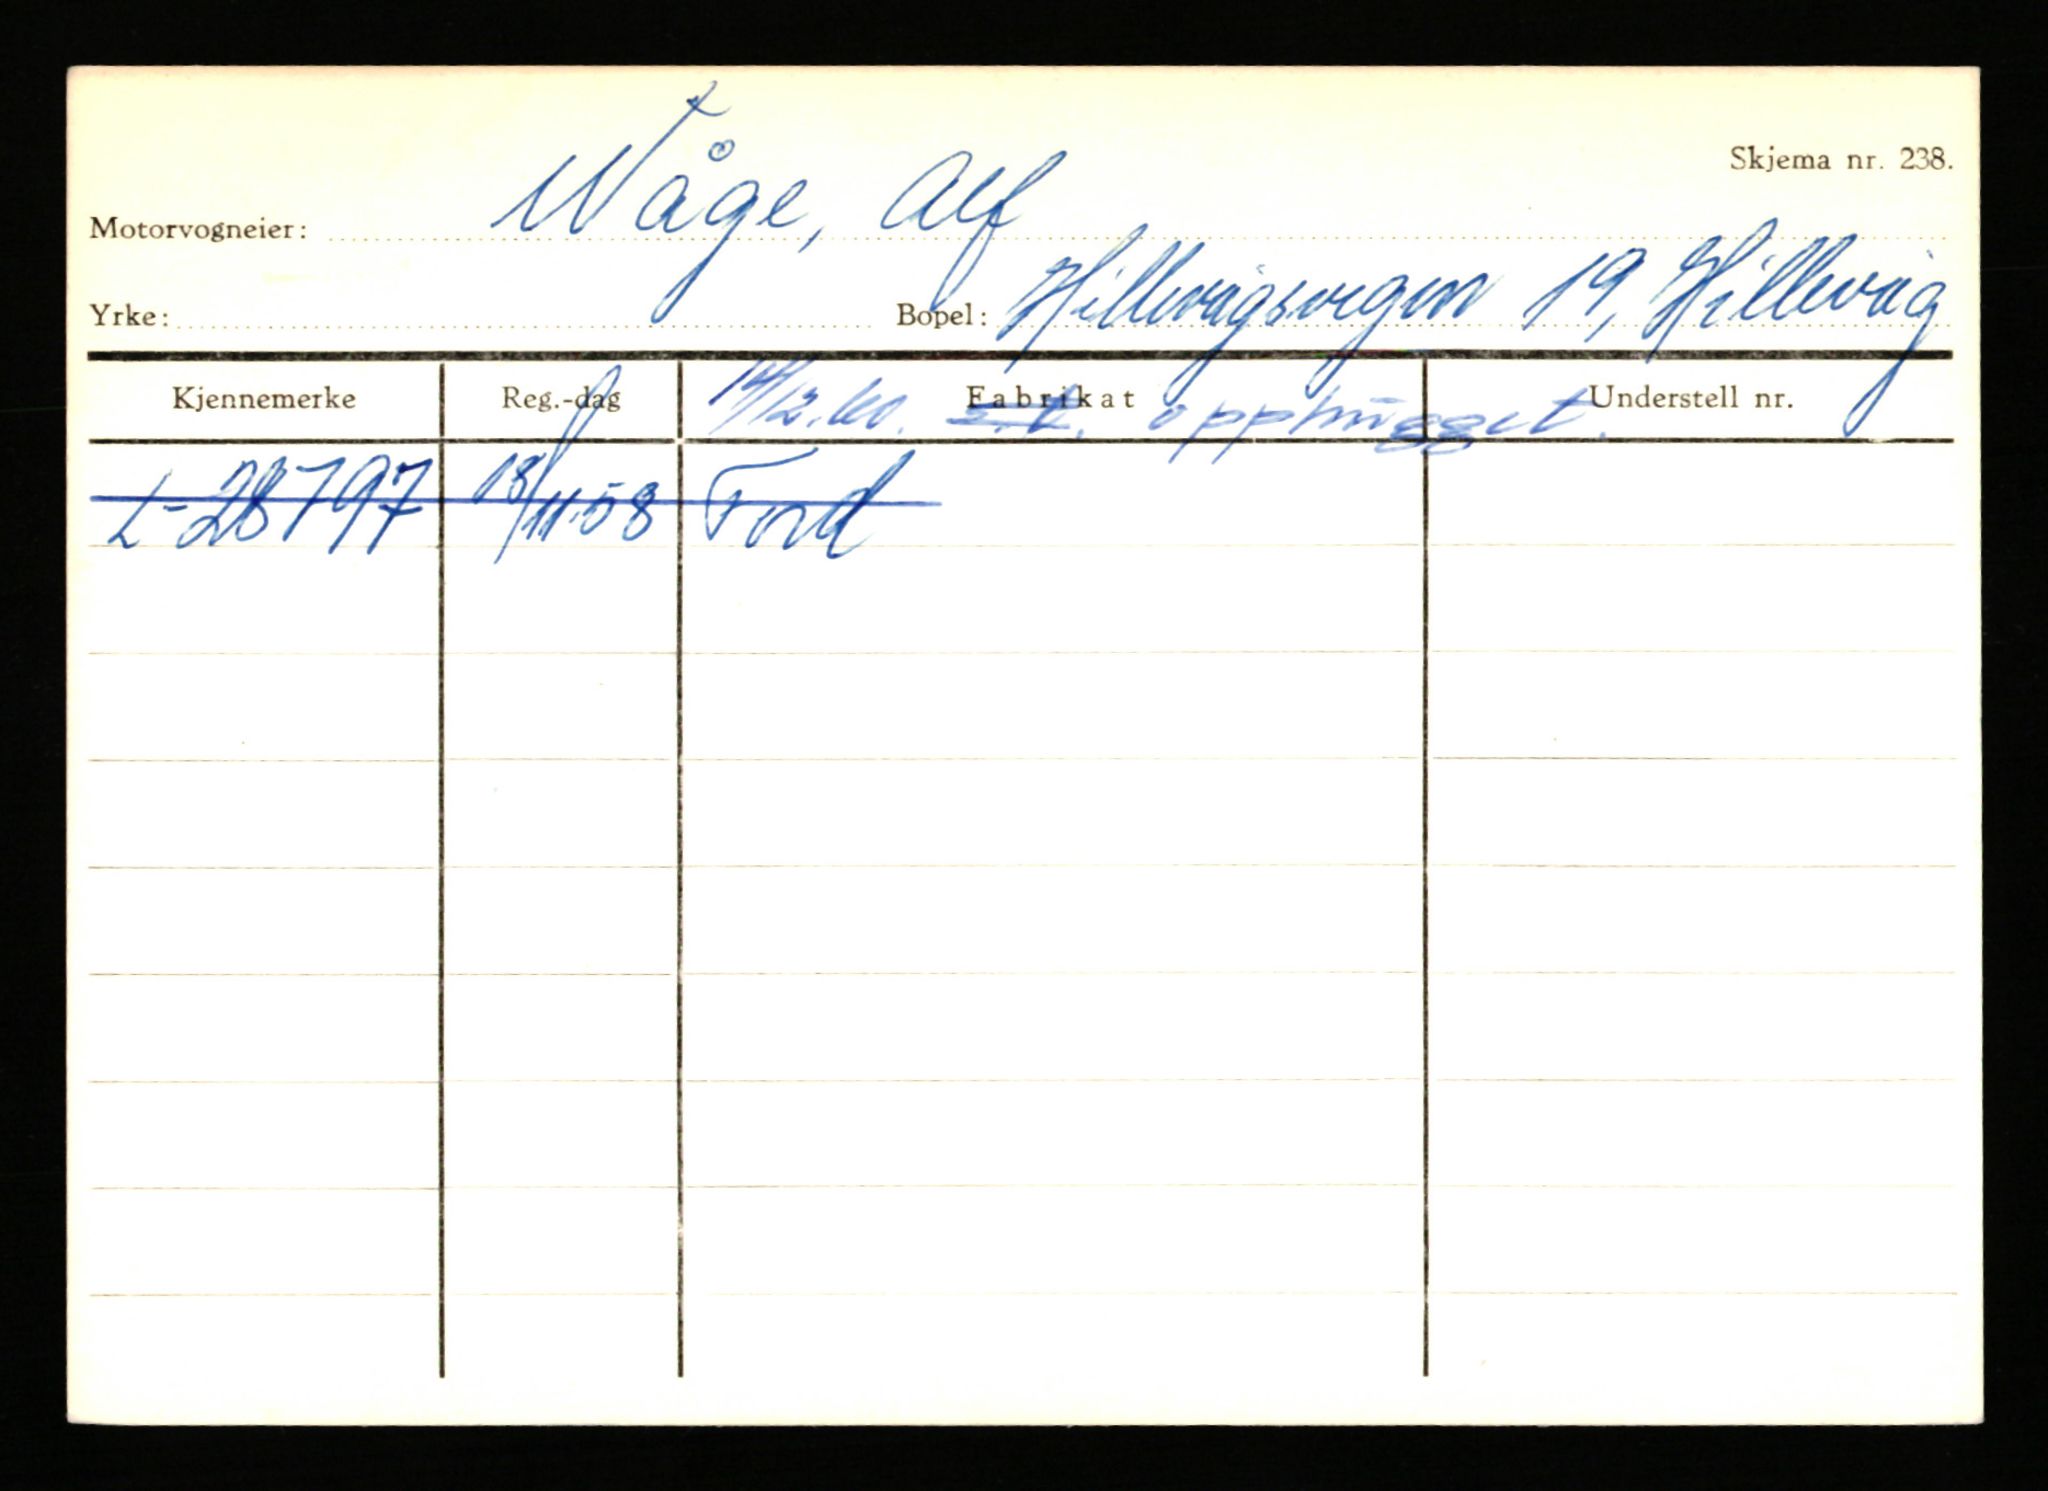 Skjema nr. 238.
Motorvogneier: Wåge, Alf
Yrke: Bopel: Hillevågsvegen 19, Hillevåg
Kjennemerke Reg.-dag Fabrikat Understell nr.
14/12.60. opphugget.
L-28797 18/11-58 Ford